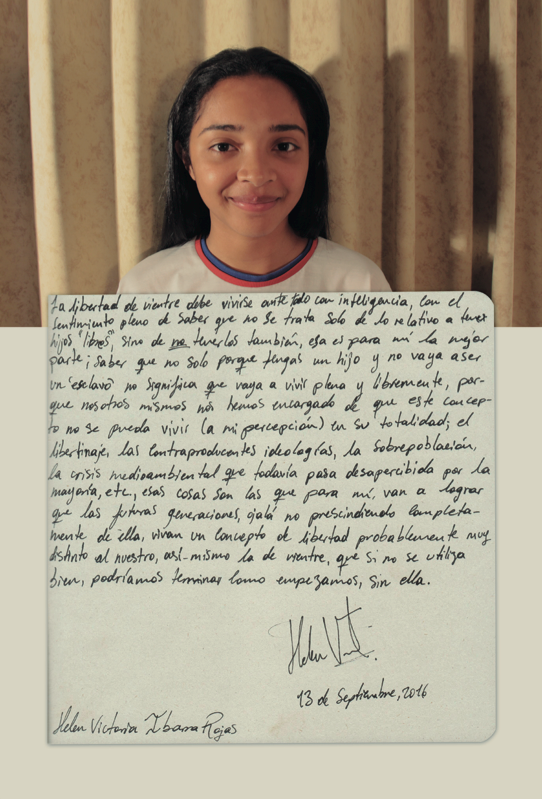 La libertad de vientre debe vivirse ante todo con inteligencia, con el
sentimiento pleno de saber que no se trata solo de lo relativo a tener
hijos "libres", sino de no tenerlos también, esa es para mí la mejor
parte; saber que no solo porque tengas un hijo y no vaya a ser
un "esclavo" no significa que vaya a vivir plena y libremente, por-
que nosotros mismos nos hemos encargado de que este concep-
to no se pueda vivir (a mi percepción) en su totalidad; el
libertinaje, las contraproducentes ideologías, la sobrepoblación,
la crisis medioambiental que todavía pasa desapercibida por la
mayoría, etc., esas cosas son las que para mí, van a lograr
que las futuras generaciones, ojalá no prescindiendo completa-
mente de ella, vivan un concepto de libertad probablemente muy
distinto al nuestro, así-mismo la de vientre, que si no se utiliza
bien, podríamos terminar como empezamos, sin ella.
13 de Septiembre, 2016
Helen Victoria Ibarra Rojas